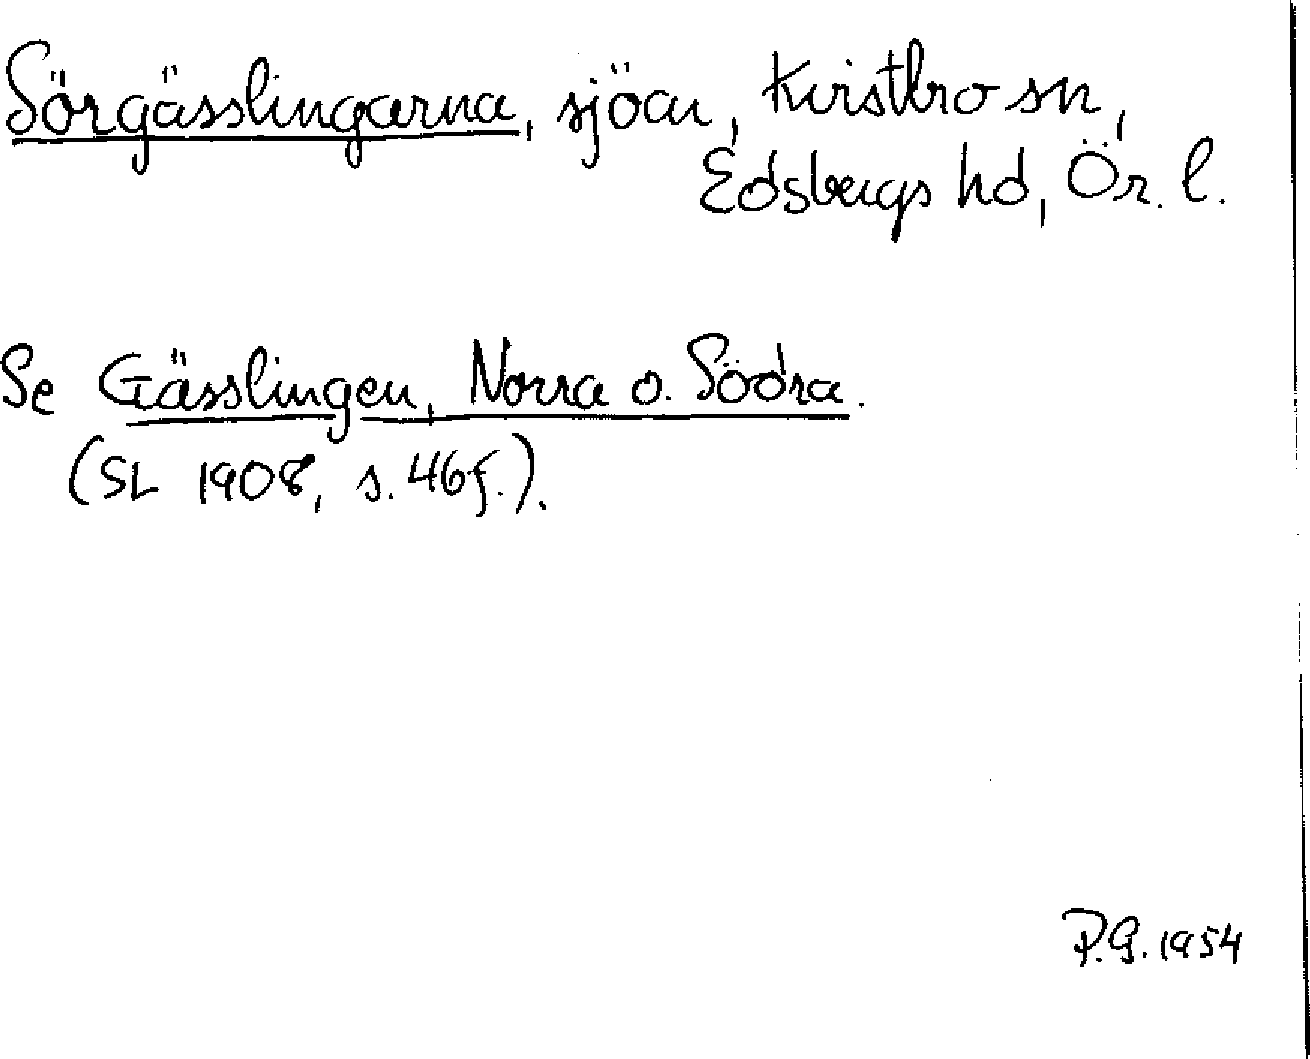 Sörgässlingarna, sjöar, Kvistbro sn,
Edsbergs hd, Ör. l.
Se Gässlingen, Norra o. Södra.
(SL 1908, s. 46 f.).
P.G. 1954